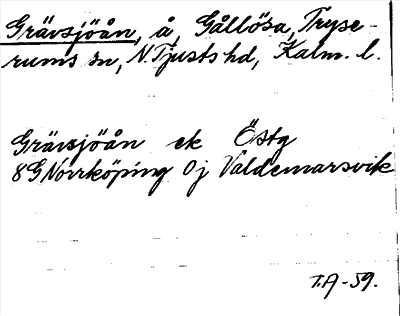 Grävsjöån, å, Gållösa, Tryse-
rums sn, N. Tjusts hd, Kalm. l.
Grävsjöån ek Östg
8G Norrköping 0j Valdemarsvik
T.A-59.